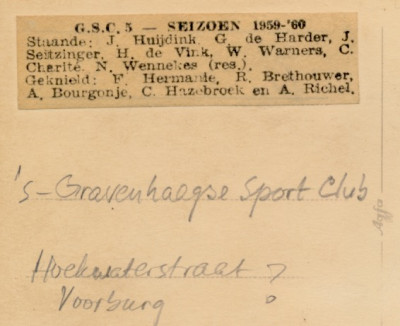 G.S.C. 5 — SEIZOEN 1959-'60
Staande: J. Huijdink, G. de Harder, J.
Seitzinger, H. de Vink, W. Warners, C.
Charité, N. Wennekes (res.).
Geknield: F. Hermanie, R. Brethouwer,
A. Bourgonje, C. Hazebroek en A. Richel.
's-Gravenhaagse Sport Club
Hoekwaterstraat ?
Voorburg